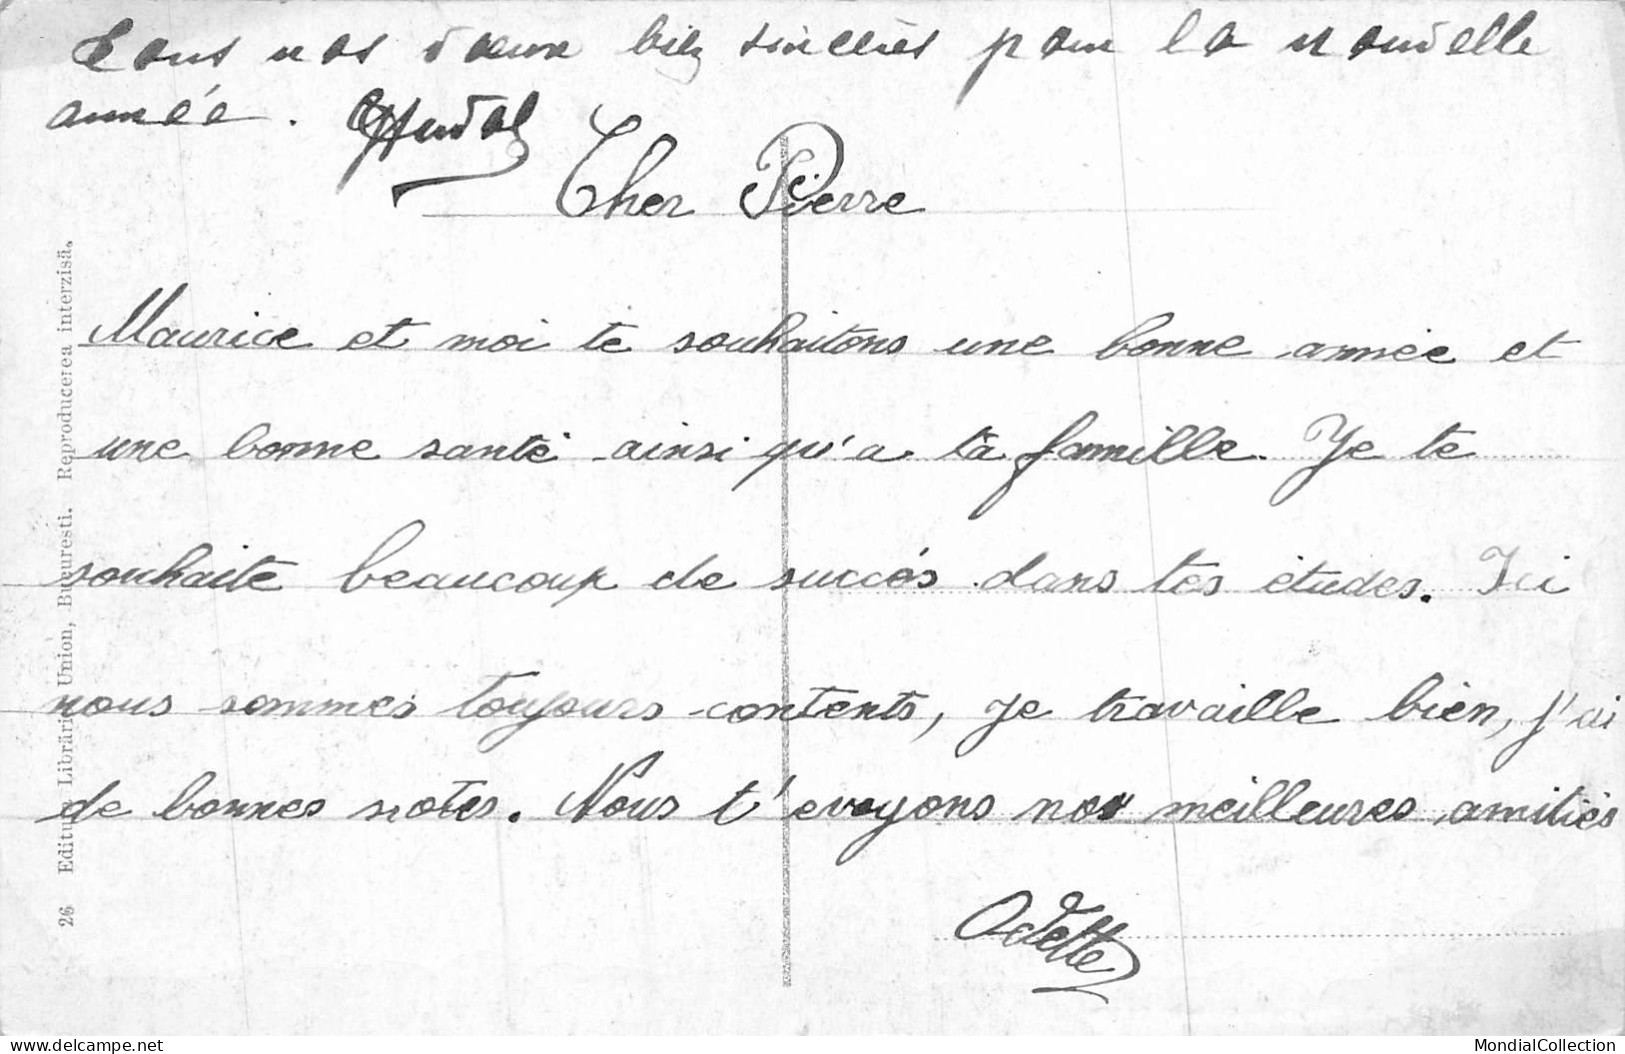 Tous nos vœux bien sincères pour la nouvelle
année.
Cher Pierre
Maurice et moi te souhaitons une bonne année et
une bonne santé ainsi qu'a ta famille. Je te
souhaite beaucoup de succés dans tes études. Ici
nous sommes toujours contents, je travaille bien, j'ai
de bonnes notes. Nous t'evoyons nos meilleures amitiés
Odette
26 Editura Librăriei Union, Bucuresti. Reproducerea interzisă.
delcampe.net
MondialCollection